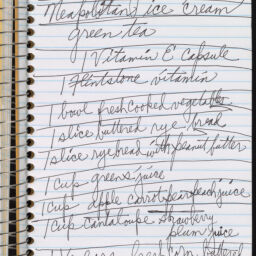 Neapolitan ice cream
green tea
1 Vitamin E capsule
1 Flintstone vitamin
1 bowl fresh cooked vegetables
1 slice buttered rye bread
1 slice rye bread with peanut butter
1 cup greens juice
1 cup apple carrot pear peach juice
1 cup cantaloupe strawberry
plum juice
fresh corn buttered